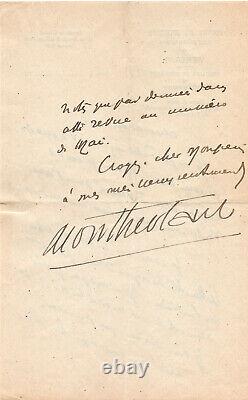 par dernier dans
cette revue au numéro
de Mai.
Croyez, cher Monsieur
à mes meilleurs sentiments
Montherlant
ebay.com